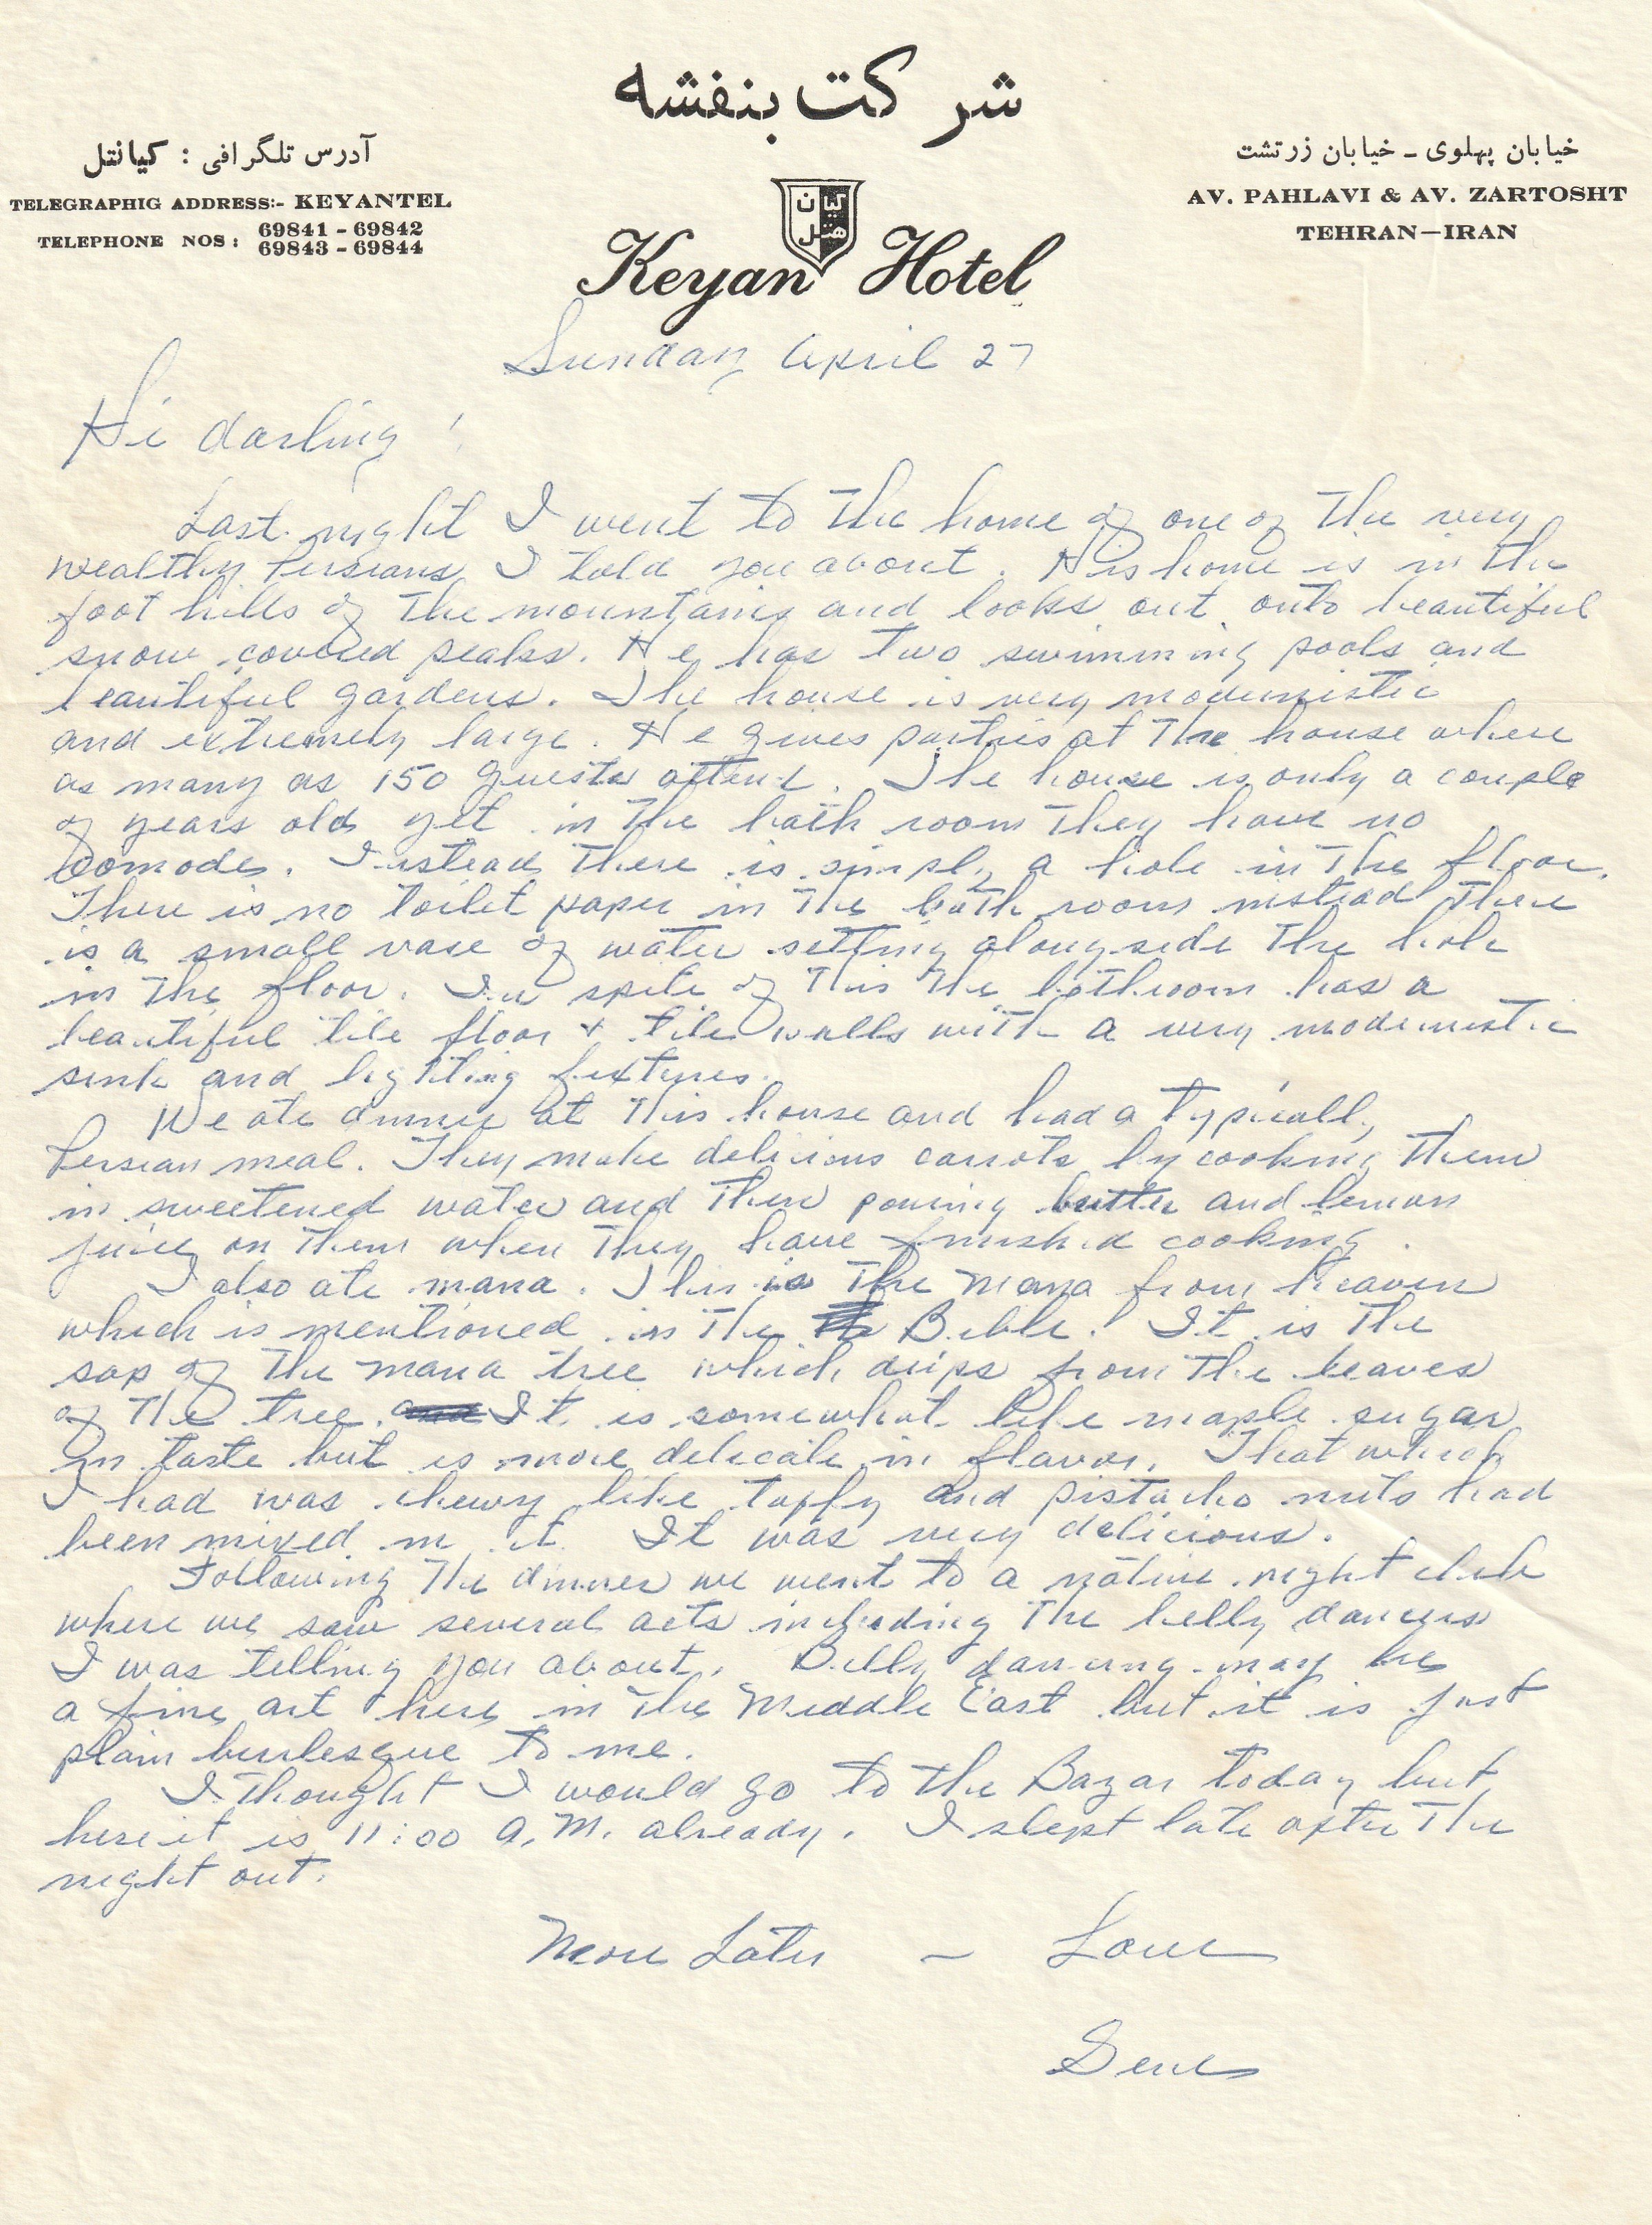 شرکت بنفشه
آدرس تلگرافی : کیانتل
TELEGRAPHIG ADDRESS:- KEYANTEL
TELEPHONE NOS : 69841 - 69842
69843 - 69844
کیان
هتل
Keyan Hotel
خیابان پهلوی - خیابان زرتشت
AV. PAHLAVI & AV. ZARTOSHT
TEHRAN-IRAN
Sunday April 27
Hi darling !
Last night I went to the home of one of the very
wealthy Persians I told you about. His home is in the
foot hills of the mountains and looks out onto beautiful
snow covered peaks. He has two swimming pools and
beautiful gardens. The house is very modernistic
and extremely large. He gives parties at the house where
as many as 150 guests attend. The house is only a couple
of years old yet in the bath room they have no
comode. Instead there is simply a hole in the floor.
There is no toilet paper in the bath room instead there
is a small vase of water setting alongside the hole
in the floor. In spite of this the bathroom has a
beautiful tile floor + tile walls with a very modernistic
sink and lighting fixtures.
We ate dinner at this house and had a typically
Persian meal. They make delicious carrots by cooking them
in sweetened water and then pouring butter and lemon
juice on them when they have finished cooking.
I also ate mana. This is the mana from heaven
which is mentioned in the Bible. It is the
sap of the mana tree which drips from the leaves
of the tree. It is somewhat like maple sugar
in taste but is more delicate in flavor. That which
I had was chewy like taffy and pistacho nuts had
been mixed in it. It was very delicious.
Following the dinner we went to a native night club
where we saw several acts including the belly dancers
I was telling you about. Belly dancing may be
a fine art here in the Middle East but it is just
plain burlesque to me.
I thought I would go to the Bazar today but
here it is 11:00 A.M. already. I slept late after the
night out.
More Later - Love
Gene